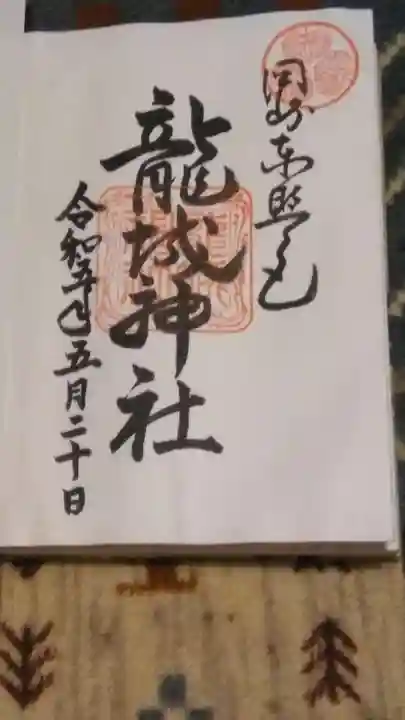 岡崎東照宮
龍城神社
令和五年五月二十日